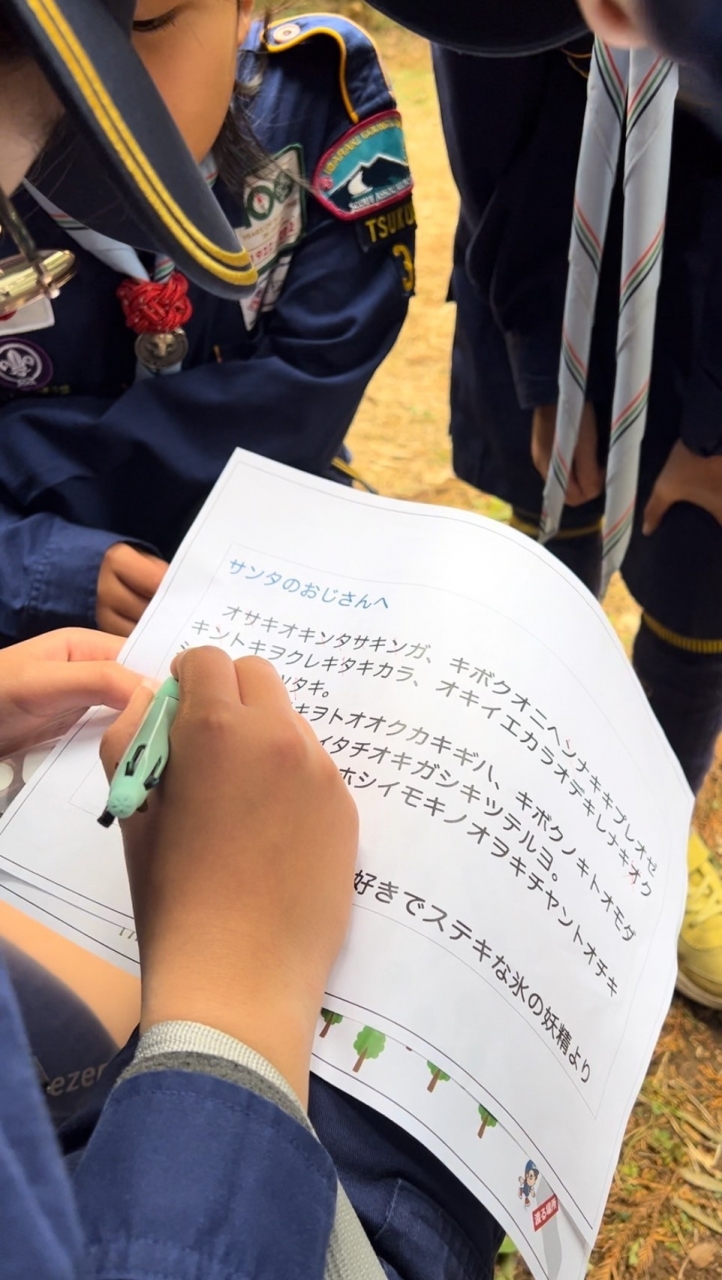 サンタのおじさんへ
オサキオキンタサキンガ、キボクオニヘンナキキブレオゼ
キントキヲクレキタキカラ、オキイエカラオテキレナキオク
ツタキ。
キヲトオオクカキギハ、キボクノキトオモダ
イタチオキガシキッテルヨ。
ホシイモキノオヲキチャントオチキ
好きでステキな氷の妖精より
渡る場所
TSUKU
3
ezer